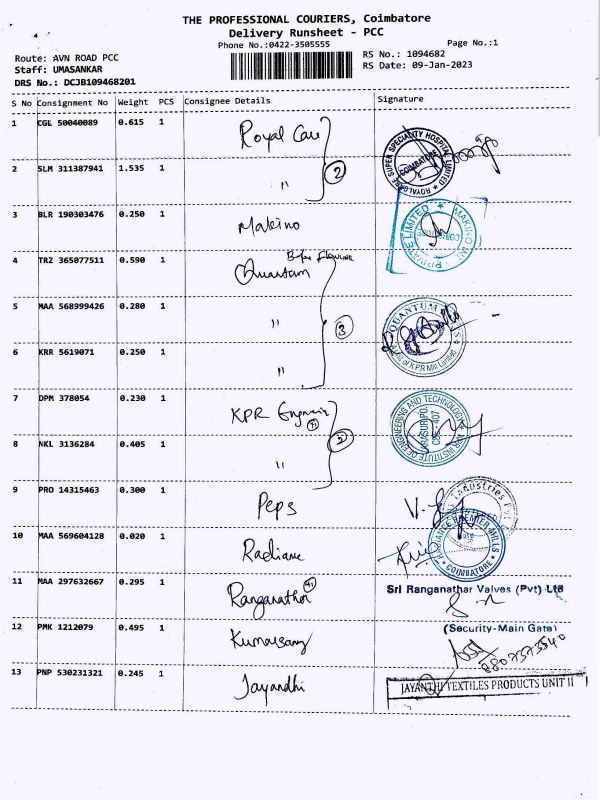 THE PROFESSIONAL COURIERS, Coimbatore
Delivery Runsheet - PCC
Phone No.:0422-3505555
Page No.:1
Route: AVN ROAD PCC
RS No.: 1094682
Staff: UMASANKAR
RS Date: 09-Jan-2023
DRS No.: DCJB109468201
S No Consignment No Weight PCS Consignee Details Signature
1 CGL 50040089 0.615 1 Royal Care
2 SLM 311387941 1.535 1 " 2
ROYALCARE SUPER SPECIALITY HOSPITAL LIMITED COIMBATORE
3 BLR 190303476 0.250 1 Makino
MAKINO PRIVATE LIMITED
4 TRZ 365077511 0.590 1 Quantum
5 MAA 568999426 0.280 1 " 3
QUANTUM
of K.P.R Mill Limited
6 KRR 5619071 0.250 1 "
7 DPM 378054 0.230 1 KPR Engineering
8 NKL 3136284 0.405 1 " 2
INSTITUTE OF ENGINEERING AND TECHNOLOGY
9 PRO 14315463 0.300 1 Peps
Industries
10 MAA 569604128 0.020 1 Radiane
RADIANCE PREMIER MILLS
COIMBATORE
11 MAA 297632667 0.295 1 Ranganathar
Sri Ranganathar Valves (Pvt) Ltd
(Security-Main Gate)
12 PMK 1212079 0.495 1 Kumarsamy
8807373540
13 PNP 530231321 0.245 1 Jayandhi
JAYANTHI TEXTILES PRODUCTS UNIT II